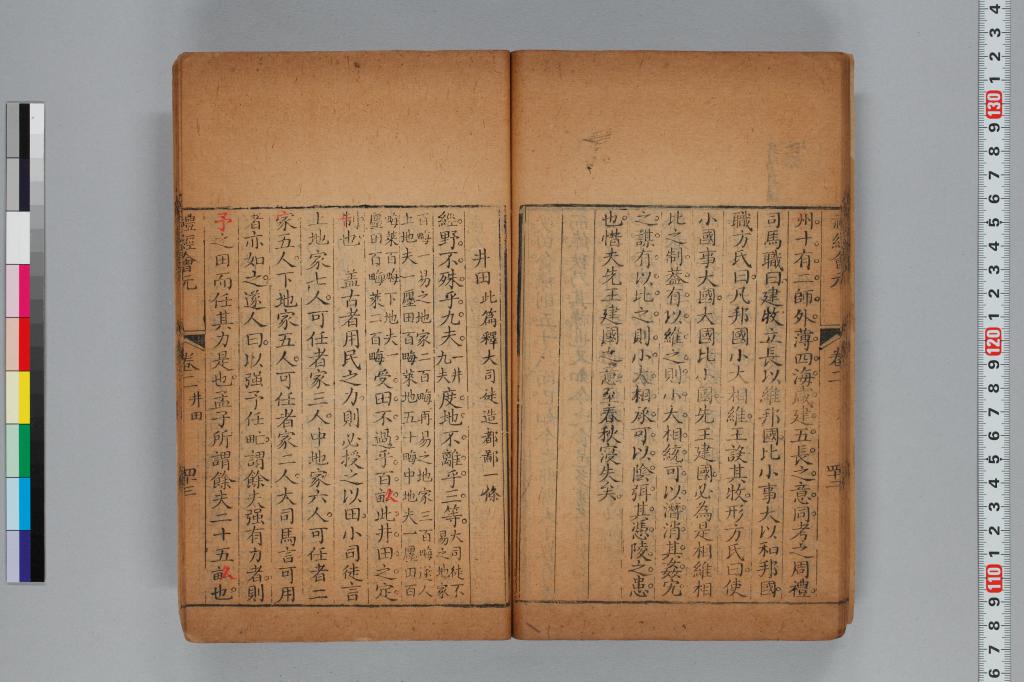 州十有二師外薄四海咸建五長之意同考之周禮
司馬職曰建牧立長以維邦國比小事大以和邦國
職方氏曰凡邦國小大相維王設其牧形方氏曰使
小國事大國大國比小國先王建國必為是相維相
比之制蓋有以維之則小大相統可以潛消其姦宄
之謀有以比之則小大相承可以陰弭其憑陵之患
也惜夫先王建國之意至春秋寖失矣
卷二
井田此篇釋大司徒造都鄙一條
經野不殊乎九夫一井九夫度地不離乎三等大司徒不易之地家
百畮一易之地家二百畮再易之地家三百畮遂人
上地夫一廛田百畮萊地五十畮中地夫一廛田百
畮萊百畮下地夫一
廛田百畮萊二百畮受田不過乎百畝此井田之定
制也蓋古者用民之力則必授之以田小司徒言
上地家七人可任者家三人中地家六人可任者二
家五人下地家五人可任者家二人大司馬言可用
者亦如之遂人曰以强予任甿謂餘夫强有力者則
予之田而任其力是也孟子所謂餘夫二十五畝也
禮經會元
卷二井田
四三